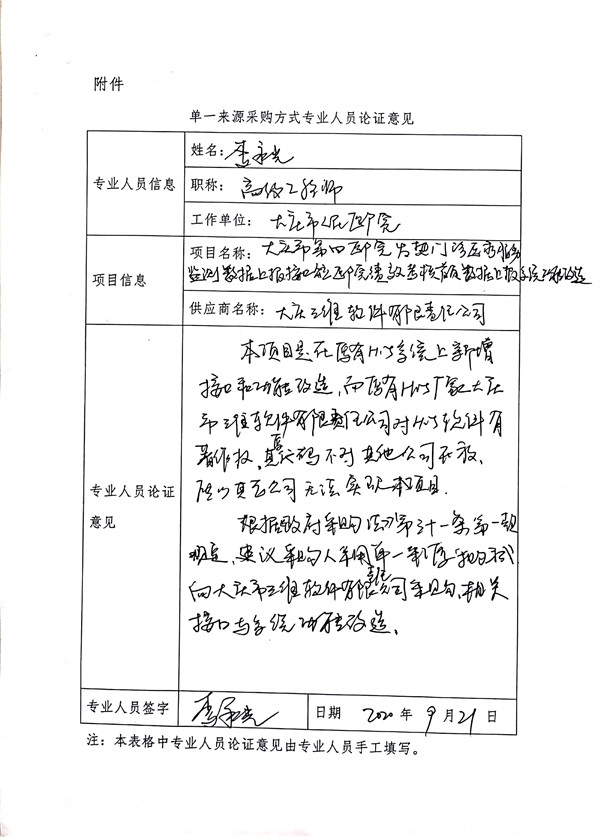 附件
单一来源采购方式专业人员论证意见
专业人员信息
姓名：李
职称：高级工程师
工作单位：大庆市人民医院
项目信息
项目名称：大庆市第四医院发热门诊
监测数据上报接口和医院绩效考核 数据上报系统 改造
供应商名称：大庆三维软件有限责任公司
专业人员论证
意见
本项目是在原有HIS系统上新增
接口和功能改造，而原有HIS厂家大庆
市三维软件有限责任公司对HIS软件有
著作权，其源代码不对其他公司开放，
所以其它公司无法实现本项目．
根据政府采购法第三十一条第一款
规定，建议采购人采用单一来源 方式
向大庆市三维软件有限责任公司采购，相关
接口与系统功能改造、
专业人员签字
李
日期
2020 年 9 月 21 日
注：本表格中专业人员论证意见由专业人员手工填写。